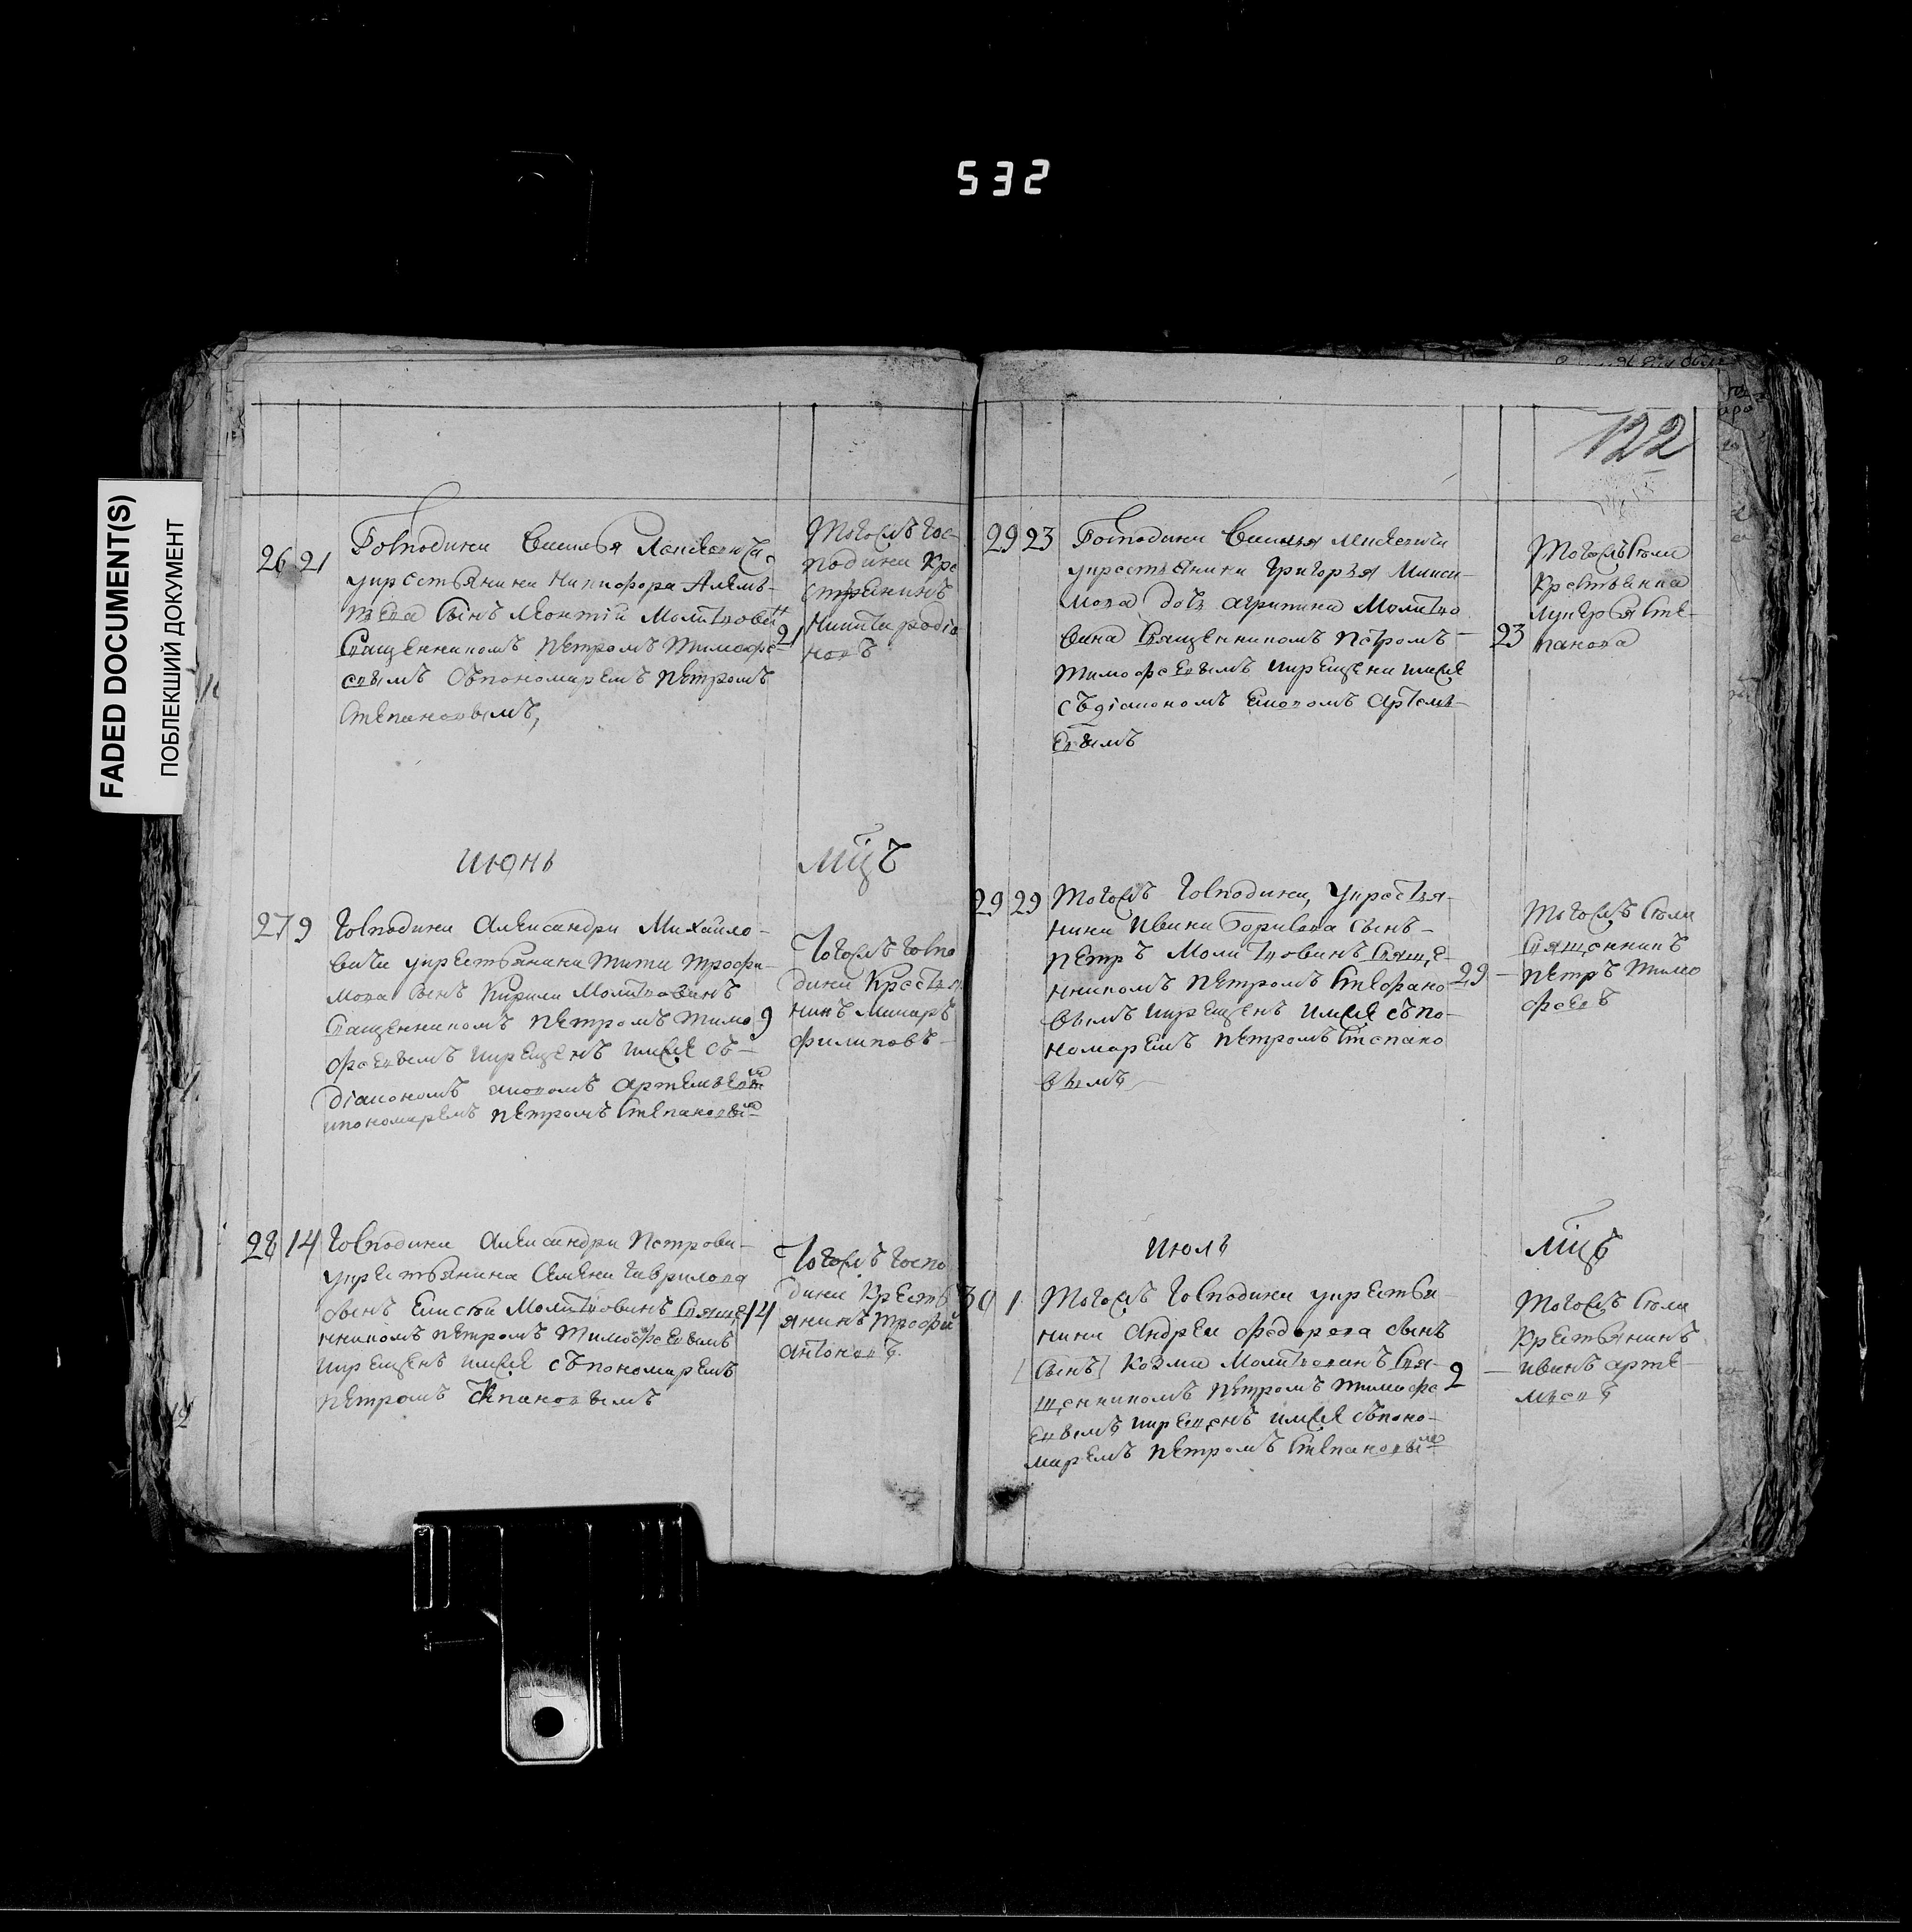 532
FADED DOCUMENT(S)
ПОБЛЕКШИЙ ДОКУМЕНТ
122
26 21
Господина Василья Алексеича
укрестьянина Никифора Алемь-
тева сынъ Леонтій Молитвовон
священникомъ Петромъ Тимофе
евымъ съпономаремъ Петромъ
Степановымъ,
21
Тогожъ гос-
подина кре
стьянинъ
Никита родіо
новъ
июнь мцъ
27 9
Господина Александра Михайло-
вича укрестьянина Тита Трофи-
мова сынъ Кирила Молитвовинъ
священникомъ Петромъ Тимо
феевымъ икрещенъ имже съ-
діакономъ Артемьевым
ипономаремъ Петромъ Степановым
9
Тогожъ госпо
дина крестья
нинъ Макаръ
филиповъ-
28 14
Господина Александра Петрови-
укрестьянина Семена гаврилова
сынъ Елисей Молитвовинъ свяще
нникомъ Петромъ Тимофеевымъ
икрещенъ имже съпономаремъ
Петромъ Степановымъ
14
Тогожъ госпо
дина крестъ
янинъ Трофи
Антоновъ.
29 23
Господина Василья Алексеича
укрестьянина Григорья Макси-
мова дочь агрипина Молитво
вина священникомъ Петромъ-
Тимофеевымъ икрещена имже
съдіакономъ Артемь-
евымъ
23
Тогожъ села
крестьянка
лукерья сте-
панова
29 29
Тогожъ господина, укрестья-
нина Ивана сынъ-
Петръ Молитвовинъ свяще-
нникомъ Петромъ Стефано
вымъ икрещенъ имже съпо-
номаремъ Петромъ Степано
вымъ
29
Тогожъ села
священникъ
Петръ Тимо
феевъ
июль мцъ
30 1
Тогожъ господина укрестья-
нина Андрея федорова сынъ
[сынъ] Козма Молитвовинъ свя-
щенникомъ Петромъ Тимофе
евымъ икрещенъ имже съпоно-
маремъ Петромъ Степановым
2
Тогожъ села
крестьянинъ
иванъ арте-
мьевъ